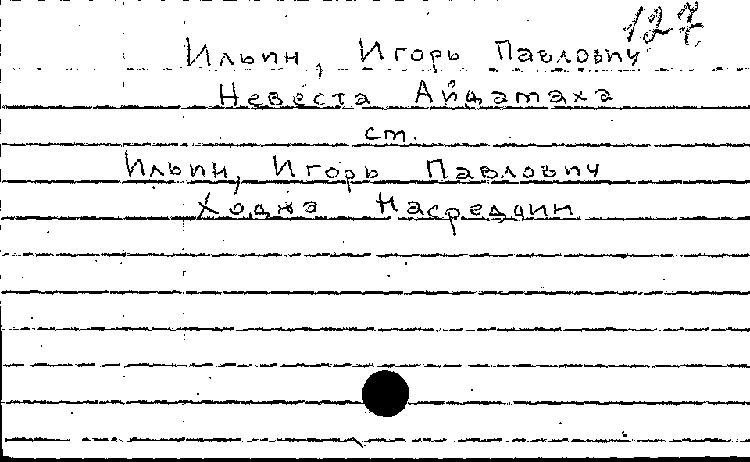 127
Ильин, Игорь Павлович
Невеста Айдатаха
ст.
Ильин, Игорь Павлович
Ходжа Насреддин